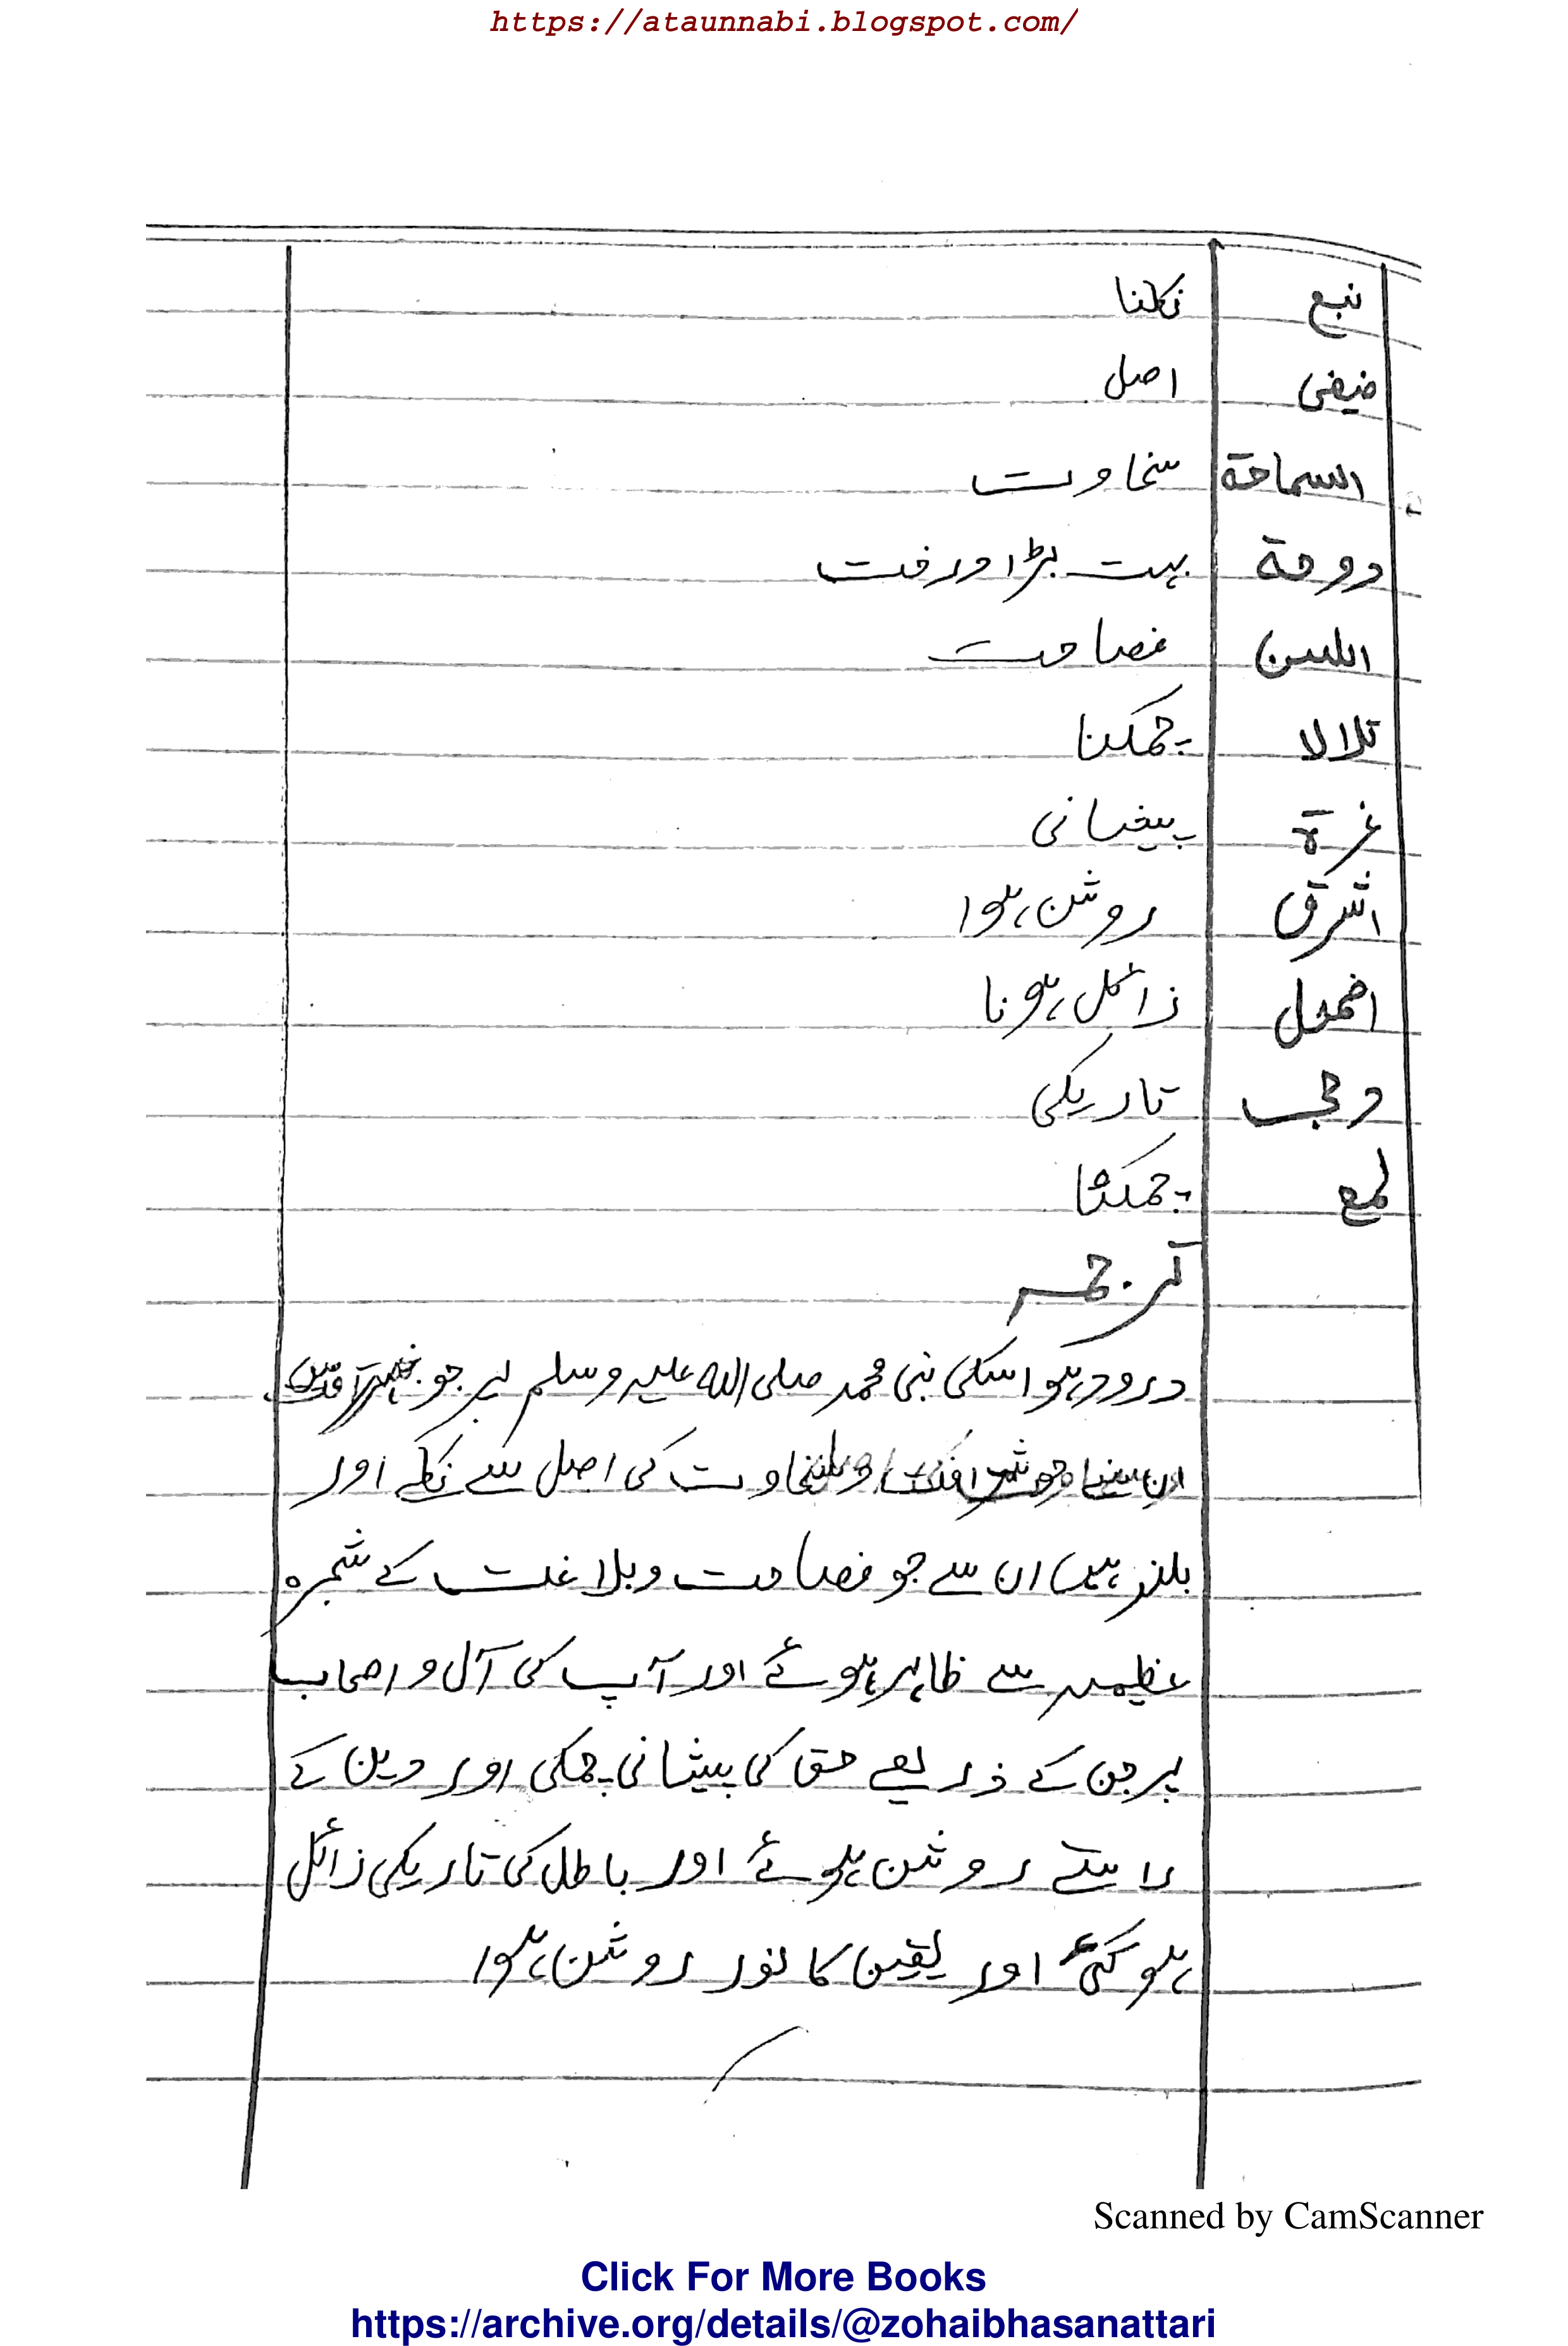 https://ataunnabi.blogspot.com/
نبع نکلنا
ضیضی اصل
السماحة سخاوت
دوحة بہت بڑا درخت
اللسن فصاحت
تلالا چمکنا
غرة پیشانی
اشرق روشن ہوا
اضمحل زائل ہونا
تاریکی
لمع چمکنا
ترجمہ
درود ہو اسکی نبی محمد صلی اللہ علیہ وسلم پر جو
سخاوت کی اصل سے نکلے اور
بلند ہیں ان سے جو فصاحت و بلاغت کے شجرہ
عظیمہ سے ظاہر ہوئے اور آپ کی آل و اصحاب
پر جن کے ذریعے حق کی پیشانی چمکی اور دین کے
راستے روشن ہوئے اور باطل کی تاریکی زائل
ہو گئی اور یقین کا نور روشن ہوا
Scanned by CamScanner
Click For More Books
https://archive.org/details/@zohaibhasanattari